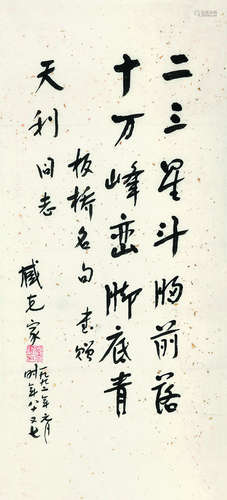 二三星斗胸前落
十万峰峦脚底青
板桥名句 书赠
天利同志
臧克家
一九九二年元月
时年八十又七